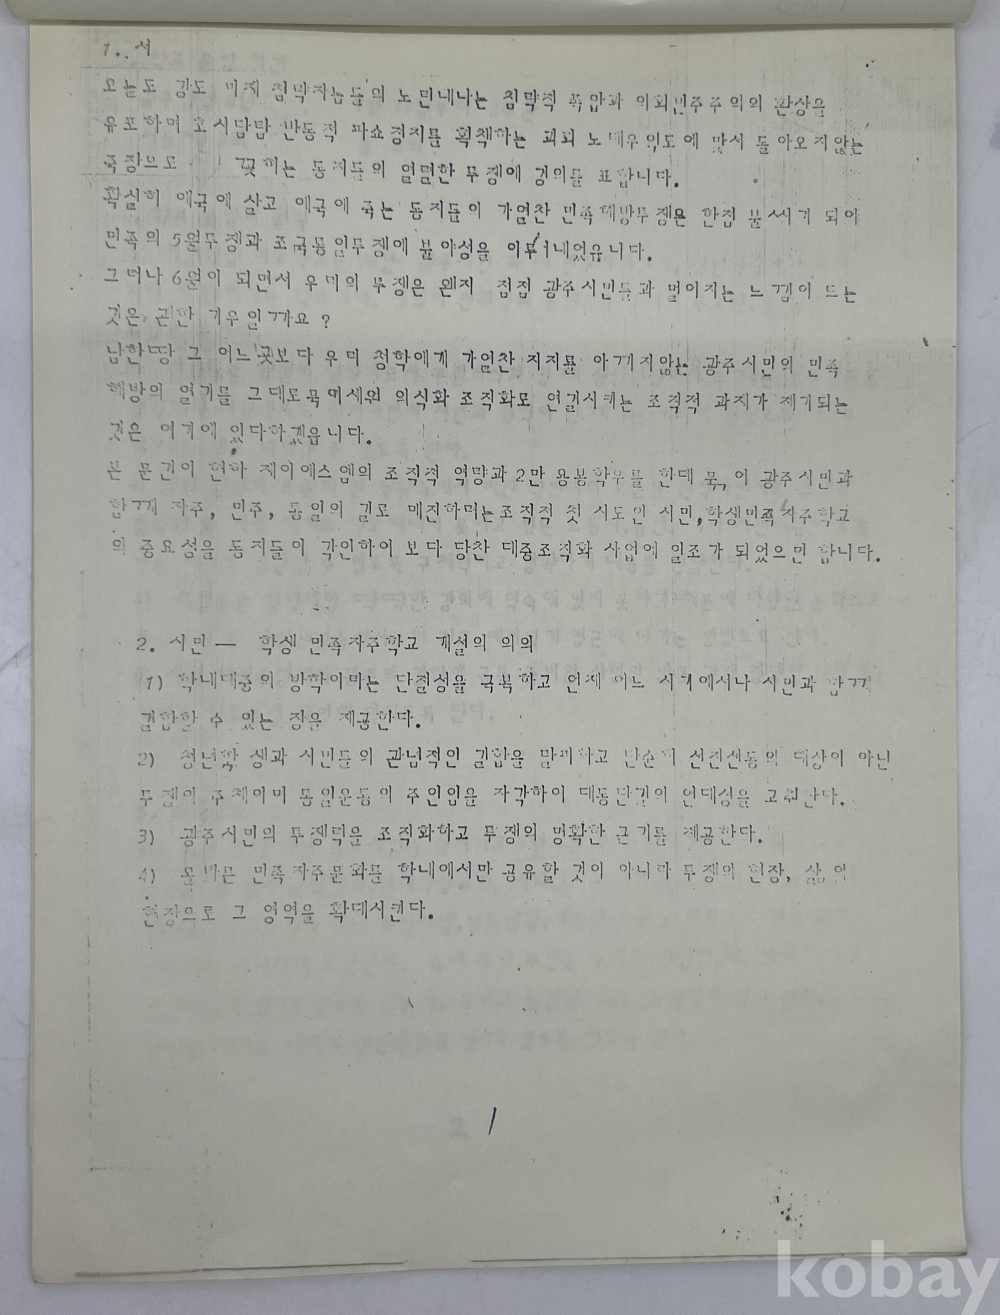 1. 서
오늘도 강도 미제 침략자놈들의 노린내나는 침략적 폭압과 의회민주주의의 환상을
유포하며 호시탐탐 반동적 파쇼정치를 획책하는 괴뢰 노태우의도에 맞서 돌아오지않는
죽창으로 꽂히는 동지들의 열렬한 투쟁에 경의를 표합니다.
확실히 애국에 살고 애국에 죽는 동지들의 가열찬 민족해방투쟁은 한점 불씨가 되어
민족의 5월투쟁과 조국통일투쟁에 불야성을 이루어내었읍니다.
그러나 6월이 되면서 우리의 투쟁은 왠지 점점 광주시민들과 멀어지는 느낌이 드는
것은 괜한 기우일까요 ?
남한땅 그 어느곳보다 우리 청학에게 가열찬 지지를 아끼지않는 광주시민의 민족
해방의 열기를 그대로묵이세워 의식화 조직화로 연결시키는 조직적 과제가 제기되는
것은 여기에 있다하겠읍니다.
본 문건이 현하 제이에스엠의 조직적 역량과 2만 용봉학우를 한데 묶어 광주시민과
함께 자주, 민주, 통일의 길로 매진하려는조직적 첫 시도인 시민,학생민족자주학교
의 중요성을 동지들이 각인하여 보다 당찬 대중조직화 사업에 일조가 되었으면 합니다.
2. 시민 — 학생 민족자주학교 개설의 의의
1) 학내대중의 방학이라는 단절성을 극복하고 언제 어느 시기에서나 시민과 함께
결합할 수 있는 장을 제공한다.
2) 청년학 생과 시민들의 관념적인 결합을 탈피하고 단순히 선전선동의 대상이 아닌
투쟁의 주체이며 통일운동의 주인임을 자각하여 대동단결의 연대성을 고취한다.
3) 광주시민의 투쟁력을 조직화하고 투쟁의 명확한 근거를 제공한다.
4) 올바른 민족자주문화를 학내에서만 공유할 것이 아니라 투쟁의 현장, 삶의
현장으로 그 영역을 확대시킨다.
1
kobay